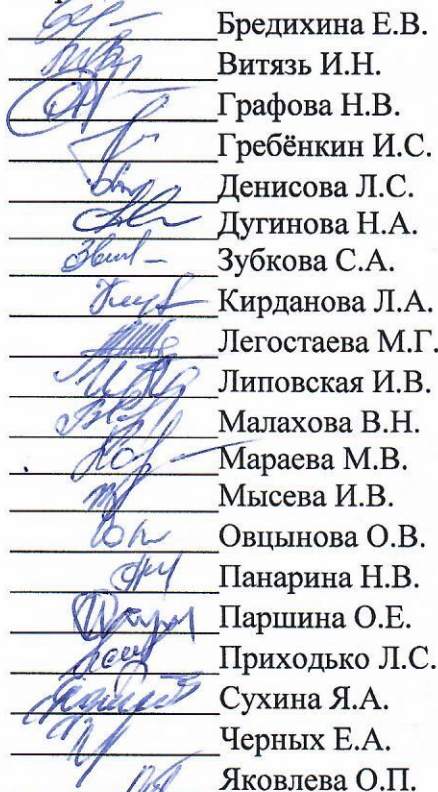 Бредихина Е.В.
Витязь И.Н.
Графова Н.В.
Гребёнкин И.С.
Денисова Л.С.
Дугинова Н.А.
Зубкова С.А.
Кирданова Л.А.
Легостаева М.Г.
Липовская И.В.
Малахова В.Н.
Мараева М.В.
Мысева И.В.
Овцынова О.В.
Панарина Н.В.
Паршина О.Е.
Приходько Л.С.
Сухина Я.А.
Черных Е.А.
Яковлева О.П.